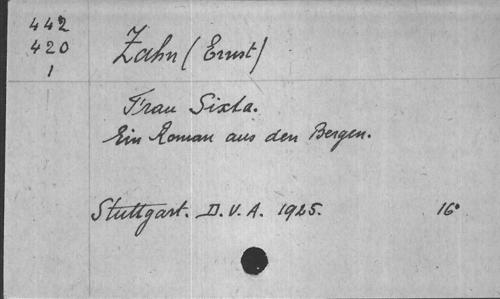 442
420
1
Zahn (Ernst)
Frau Sixta.
Ein Roman aus den Bergen.
Stuttgart. D.V.A. 1925. 16°